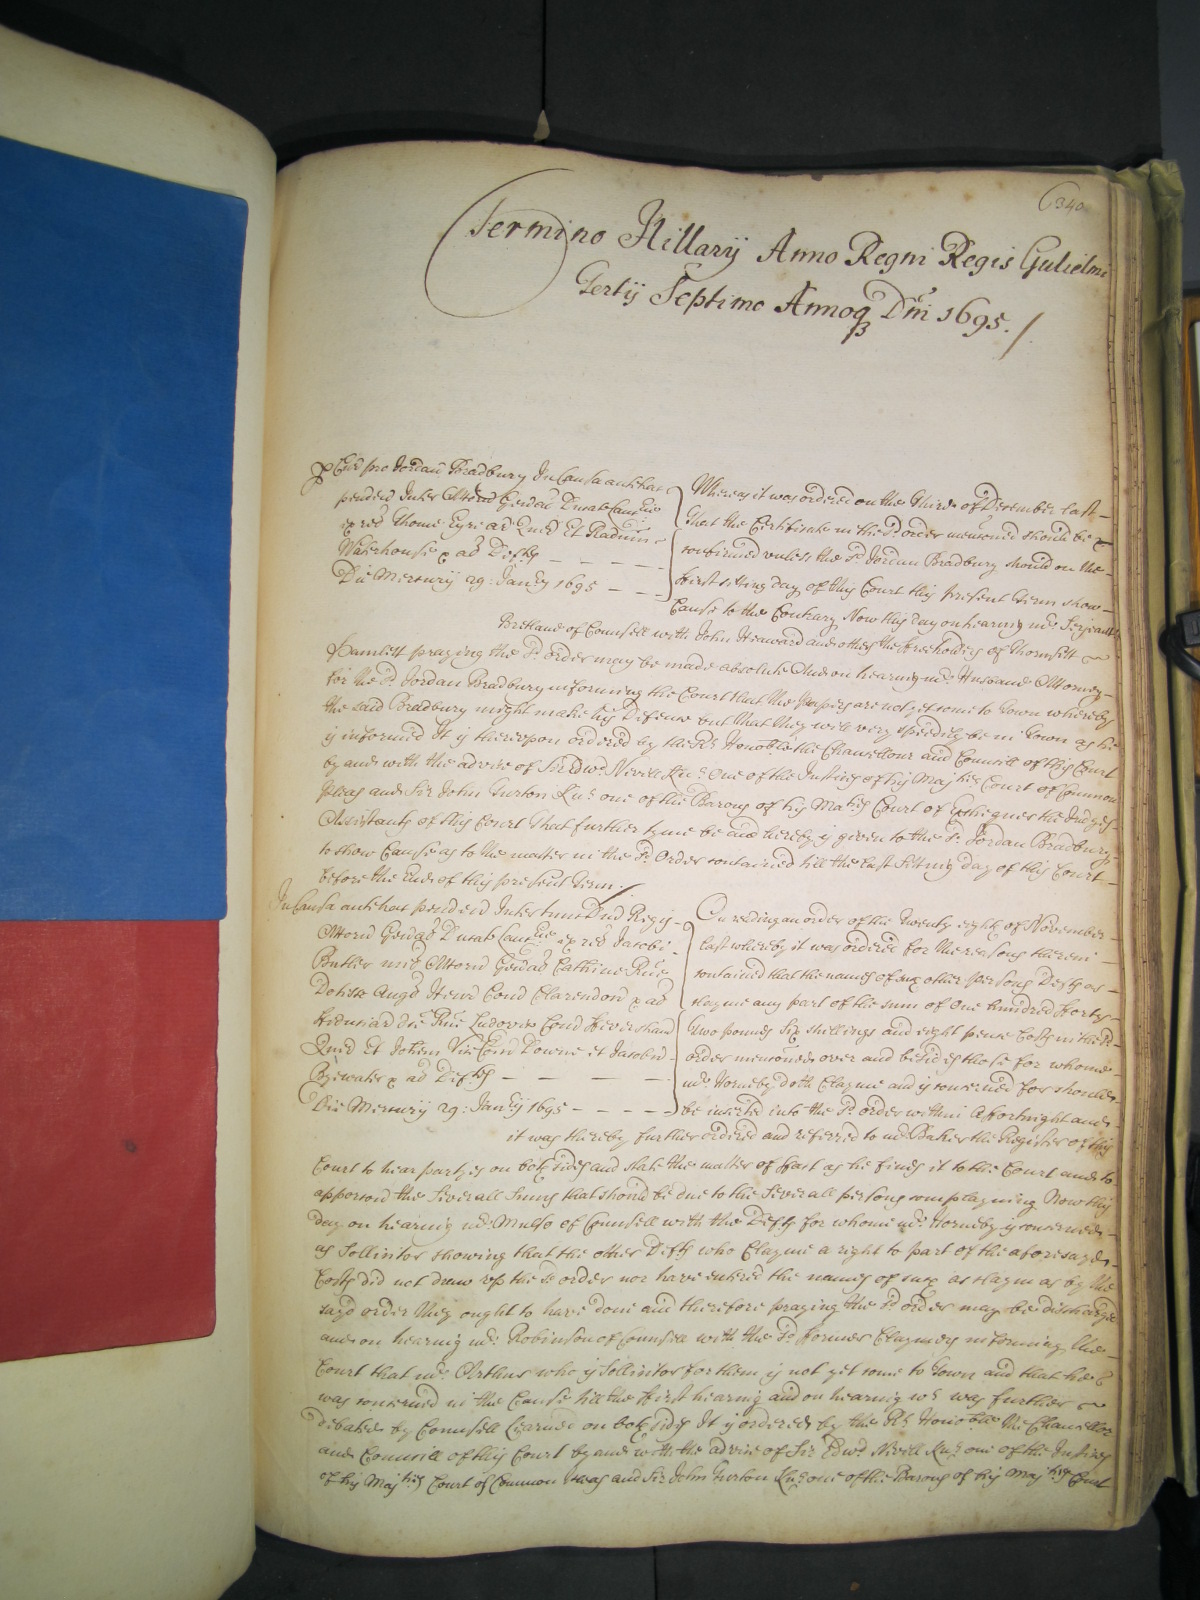 340
Termino Hillarij Anno Regni Regis Gulielmi
Tertij Septimo Annoq Dni 1695.
pro Jordan Bradbury In Causa
Whereas it was ordered on the Third of December last
pendend Inter Attorn
that the Certificate in the sd order menconed should be
ex rel Thome Eyre ar Quer Et
confirmed unless the sd Jordan Bradbury should on the
Waterhouse & al Defts
first sitting day of this Court this present Term show
Die Mercurij 29 Janry 1695
Cause to the Contrary Now this day on hearing mr Serjeant
of Counsell with John Heaward and others the freeholders of Thornsett
Hamlett praying the sd order may be made absolute And on hearing mr Husband Attorney
for the sd Jordan Bradbury informing the Court that the papers are not yet come to Town whereby
the said Bradbury might make his Defense but that they will very speedily be in Town as he
is informed It is thereupon ordered by the Rt Honoble the Chancellour and Councill of this Court
by and with the advice of Sir Edwd Nevill Knt One of the Justices of his Majties Court of Common
pleas and Sir John Turton Knt one of the Barons of his Maties Court of Exchequer the Judges
Assistants of this Court that further tyme be and hereby is given to the sd Jordan Bradbury
to show Cause as to the matter in the sd Order contained till the last sitting day of this Court
before the End of this present Term.
In Causa pendend Inter Regis
On reading an order of the Twenty eight of November
Attorn ex rel Jacobi
last whereby it was ordered for the reasons therein
Butler Attorn Catherine
contained that the names of such other persons Defts as
Henr Clarendon & al
clayme any part of the sum of One hundred fforty
Ludovic Feversham
two pounds six shillings and eight pence Costs in the sd
Quer Et Downe et
order menconed over and besides those for whome
& al Defts
mr Horneby doth Clayme and is concerned for should
Die Mercurij 29 Janry 1695
be inserted into the sd order within a fortnight and
it was thereby further ordered and referred to mr Baker the Register of this
Court to hear partyes on both sides and state the matter of fact as he finds it to the Court and to
apporcon the severall Summs that should be due to the severall persons complayning Now this
day on hearing mr Mulso of Counsell with the Defts for whome mr Horneby is concerned
as Sollicitor showing that the other Defts who Clayme a right to part of the aforesayd
Costs did not draw up the sd order nor have entered the names of such as claym as by the
sayd order they ought to have done and therefore praying the sd order may be discharged
and on hearing mr Robinson of Counsell with the sd former Claymers informing the
Court that mr Arthur who is Sollicitor for them is not yet come to Town and that he
was concerned in the Cause till the first hearing and on hearing wt was further
debated by Counsell Learned on both sides It is ordered by the Rt Honoble the Chancellor
and Councill of this Court by and with the advice of Sir Edwd Nevill Knt one of the Justices
of his Majties Court of Common pleas and Sir John Turton Knt one of the Barons of his Majties Court